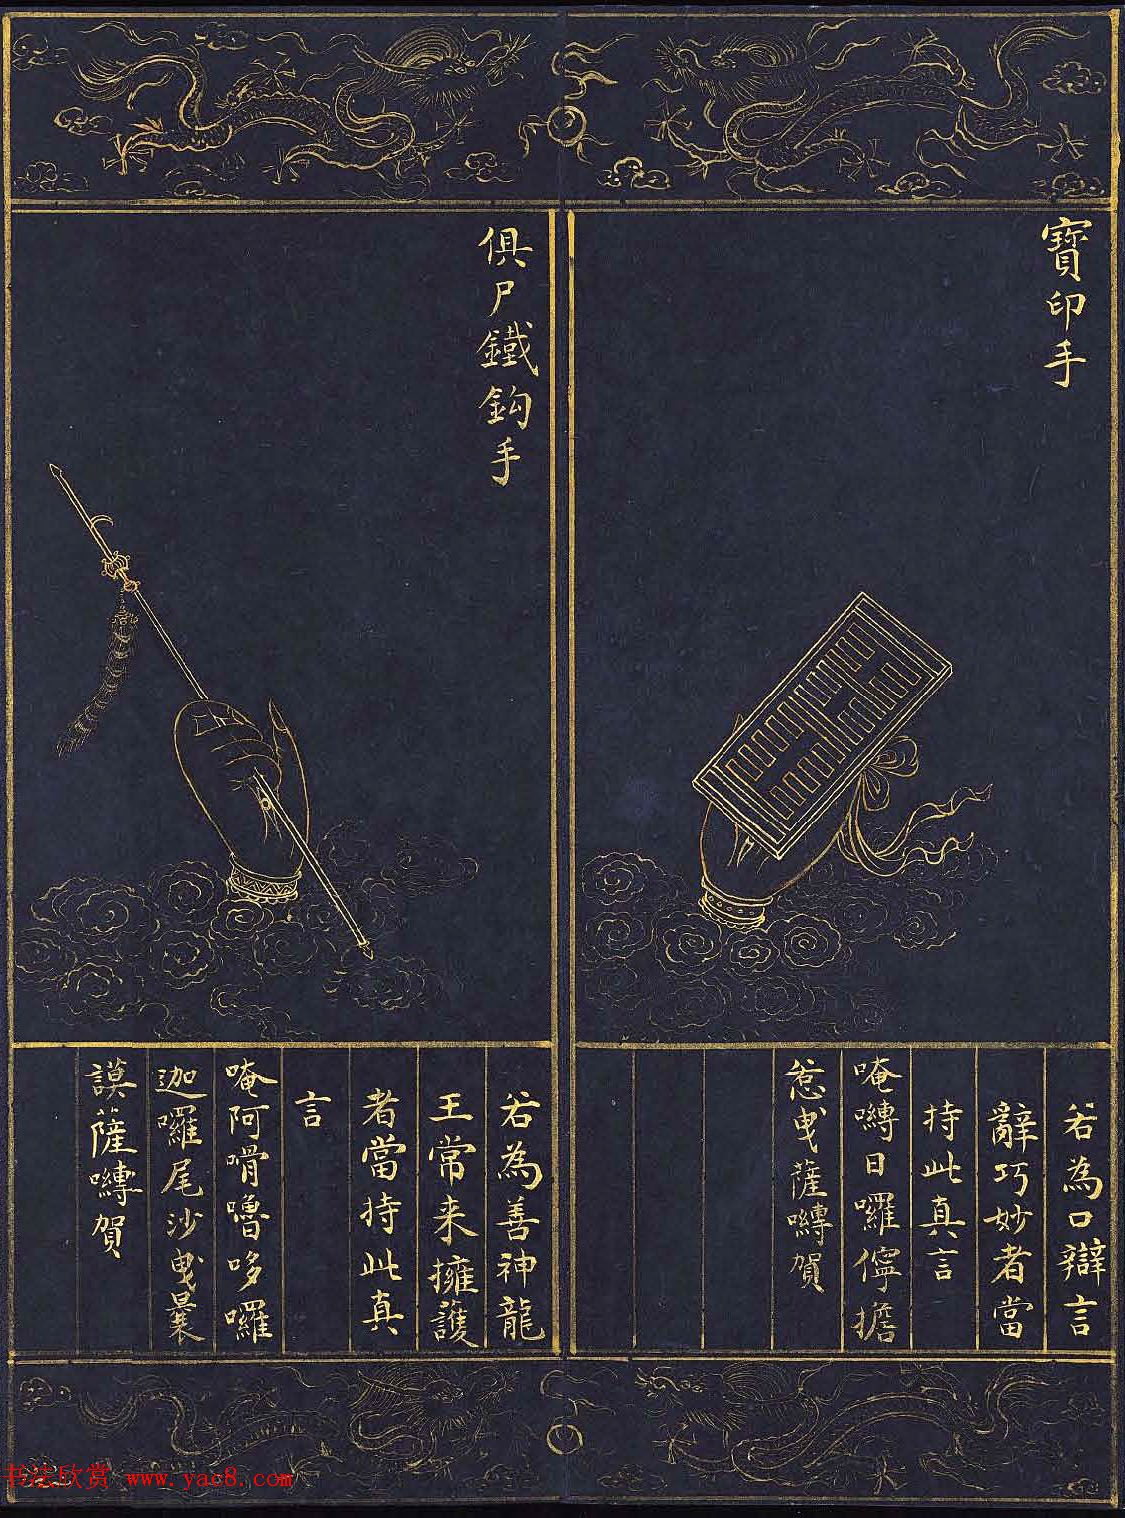 寶印手
若為口辯言
辭巧妙者當
持此真言
唵嚩日囉儜擔
惹曳薩嚩賀
俱尸鐵鉤手
若為善神龍
王常来擁護
者當持此真
言
唵阿嗗嚕哆囉
迦囉尾沙曳曩
謨薩嚩賀
书法欣赏 www.yac8.com